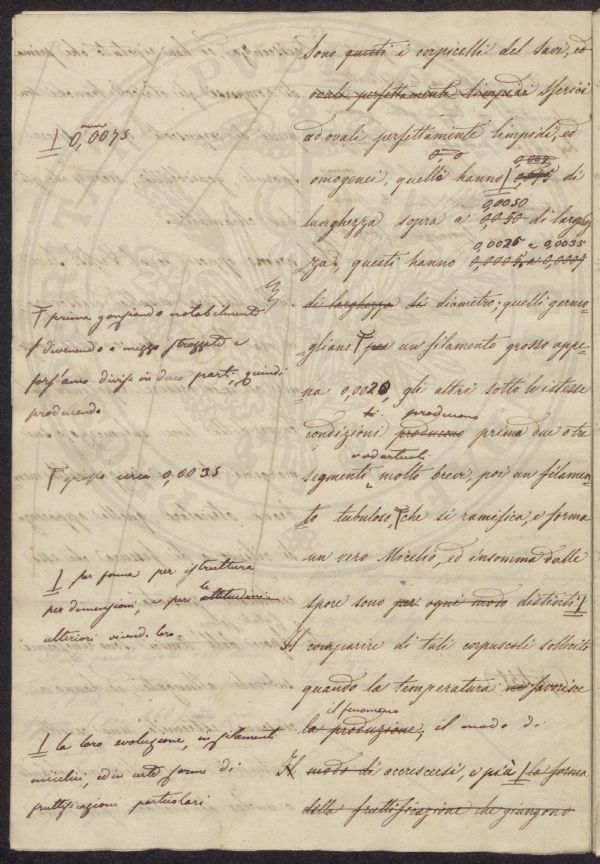 sono questi i corpicelli del Savi, ed
ovali perfettamente limpidi sferici
ad ovali perfettamente limpidi, ed
omogenei, quelli hanno di
lunghezza sopra a 0,0050 0,0050 di larghez
=za, questi hanno 0,0025 e 0,0035
di larghezza di diametro; quelli germo
=gliano un filamento grosso appe
=na 0,0020, gli altri sotto le istesse
condizioni producono producono prima due o tre
segmenti molto brevi, poi un filamen
=to tubuloso, che si ramifica, e forma
un vero Micelio, ed insomma dalle
spore sono per ogni modo distinti
Il comparire di tali corpuscoli sollecito
quando la temperatura ne favorisce
il fenomeno
la produzione, il modo di
Il modo di accrescersi, e più la forma
della fruttificazione che giungono
mm
0,0075
prima gonfiando notabilmente
divenendo a mezzo strozzato e
divise in due parti, quindi
producendo
grosso circa 0,0035
per forma per struttura
per dimensioni, e per le attitudini
ulteriori loro
la loro evoluzione, in filamenti
micelici, ed in certe forme di
fruttificazioni particolari